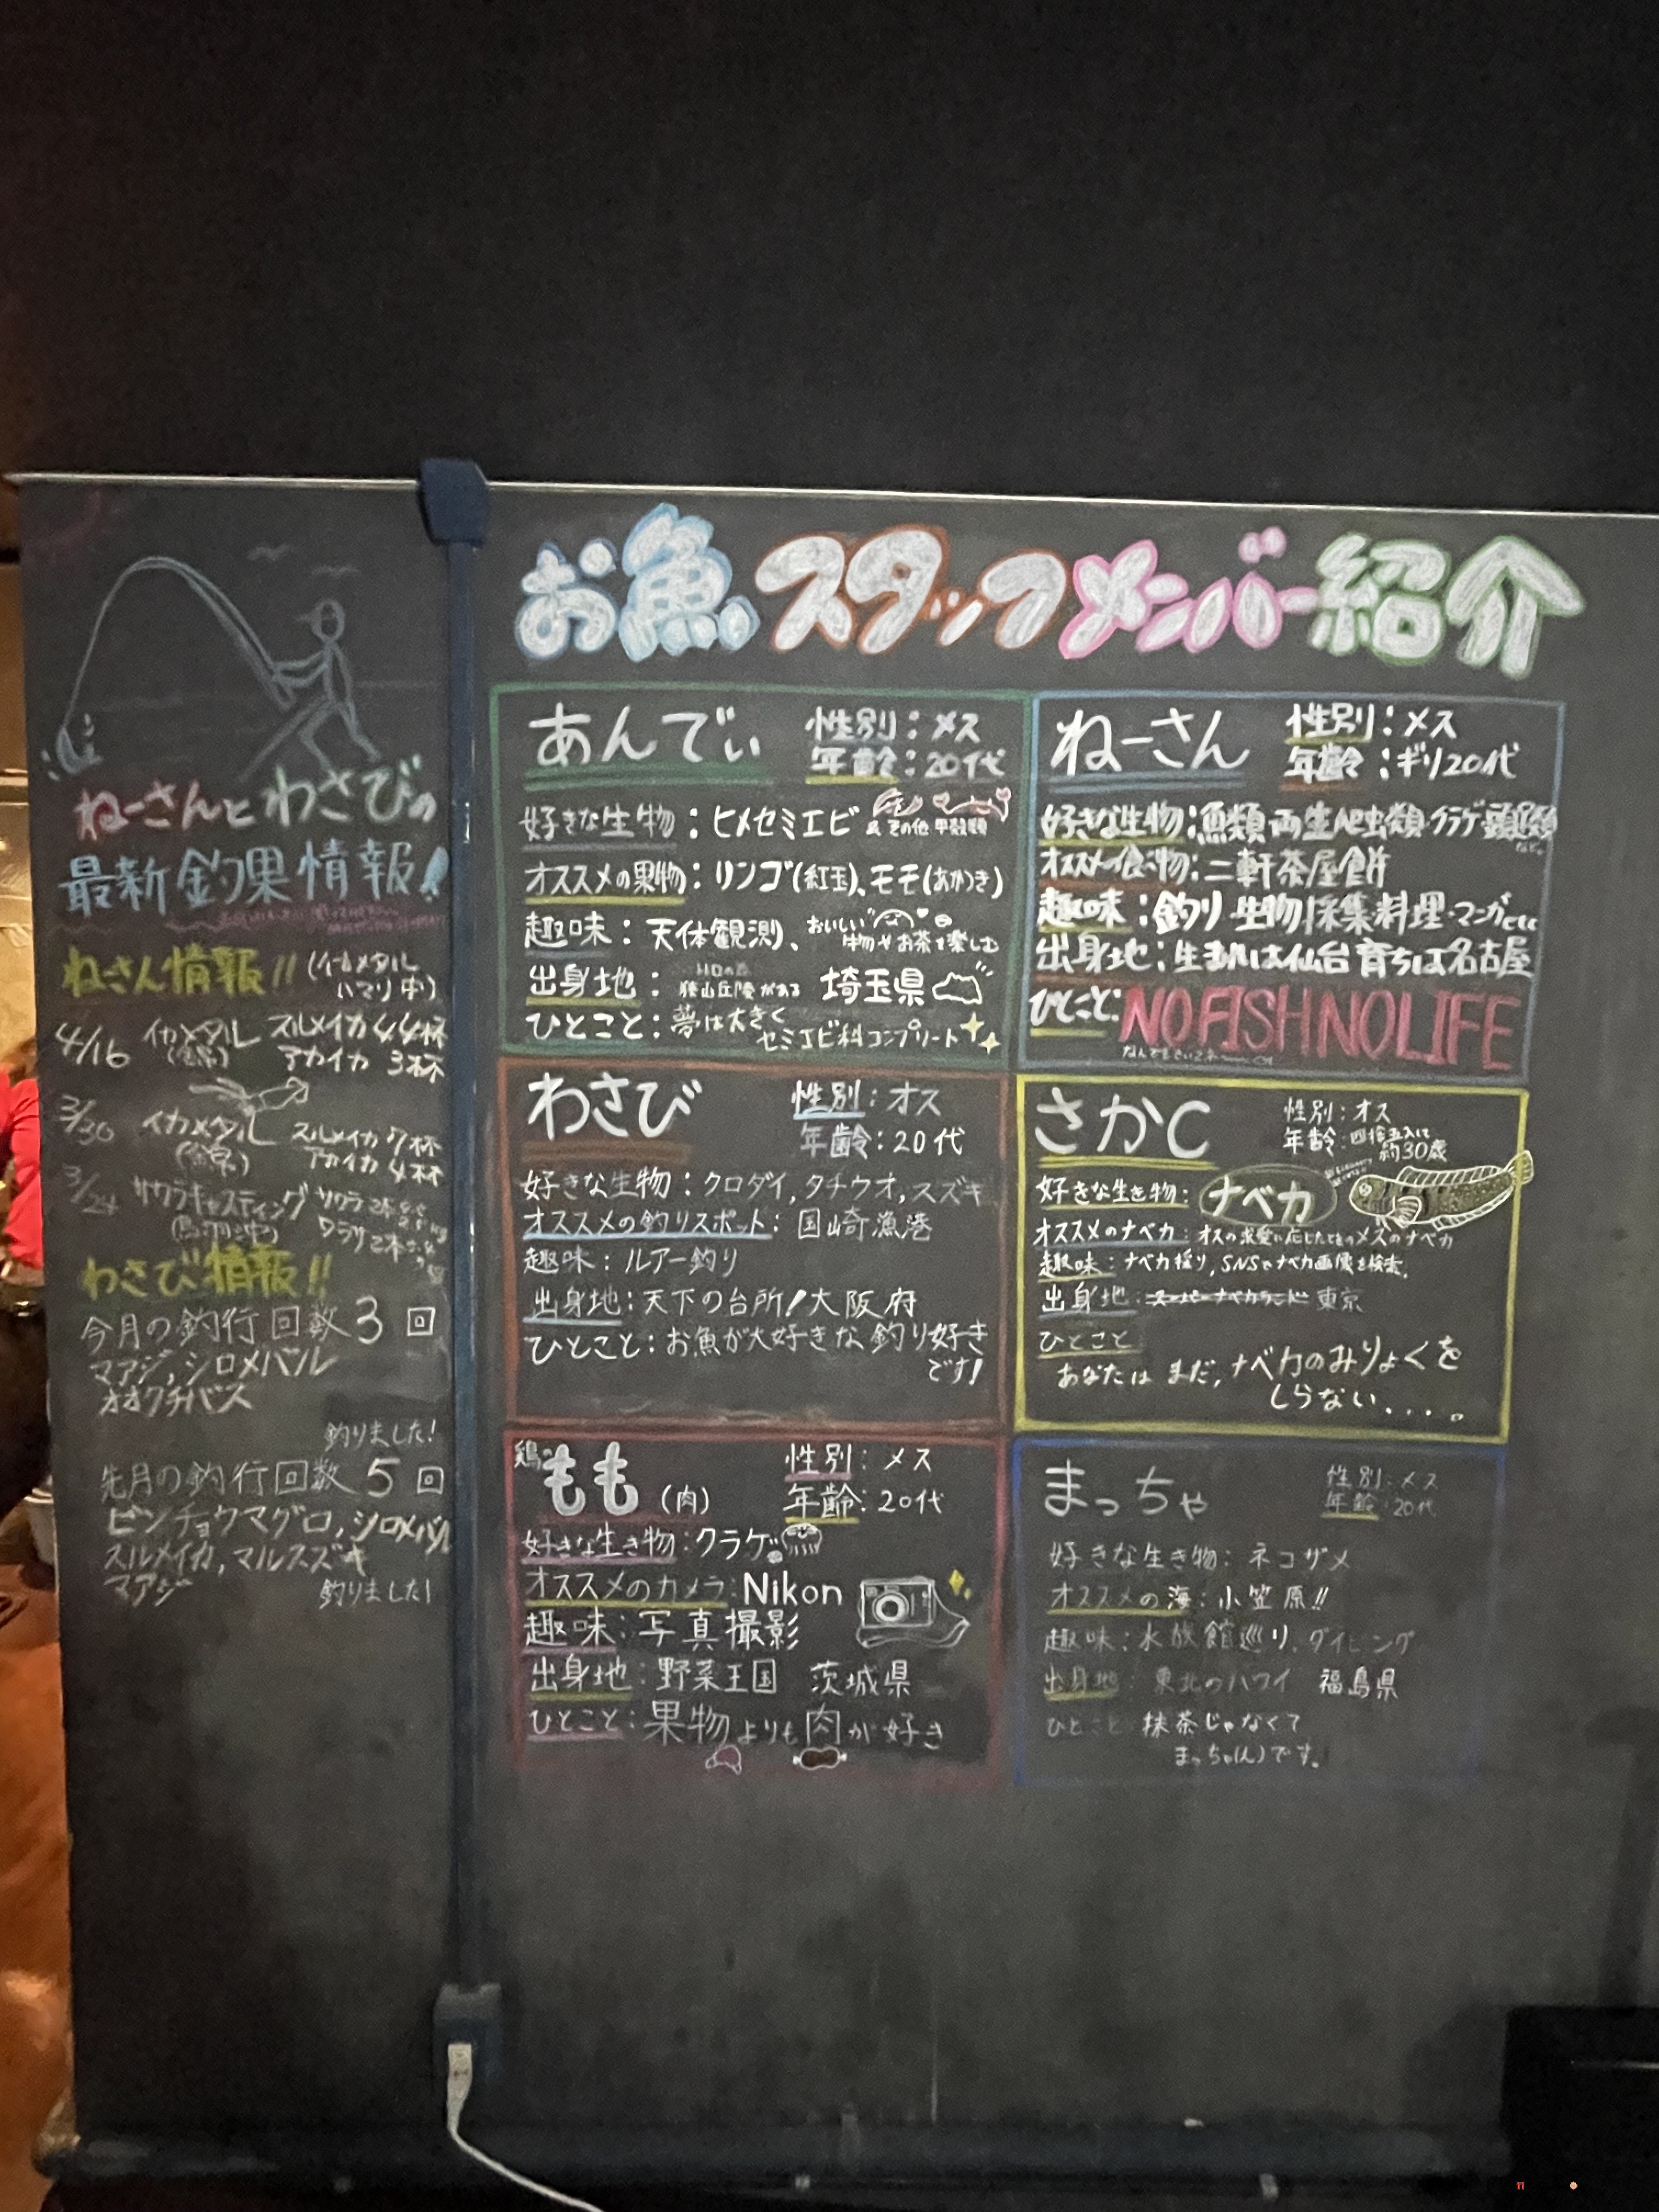 お魚スタッフメンバー紹介
ねーさんとわさびの
最新釣果情報!
ねーさん情報!! (イカメタル
ハマり中)
4/16 イカメタル スルメイカ 44杯
アカイカ 3杯
3/30 イカメタル スルメイカ 7杯
アカイカ 4杯
3/24 サクラキャスティング サクラ2本
ワラサ2本
わさび情報!!
今月の釣行回数3回
マアジ,シロメバル
オオクチバス
釣りました!
先月の釣行回数5回
ビンチョウマグロ,シロメバル
スルメイカ,マルスズキ
マアジ
釣りました!
あんでぃ
性別:メス
年齢:20代
好きな生物:ヒメセミエビ & その他 甲殻類
オススメの果物:リンゴ(紅玉)、モモ(あかつき)
趣味:天体観測、おいしい
物やお茶を楽しむ
出身地:狭山丘陵がある 埼玉県
ひとこと:夢は大きく
セミエビ科コンプリート
ねーさん
性別:メス
年齢:ギリ20代
好きな生物:魚類・両生爬虫類・クラゲ・頭足類
など。
オススメの食べ物:二軒茶屋餅
趣味:釣り・生物採集・料理・マンガetc
出身地:生まれは仙台 育ちは名古屋
ひとこと:NO FISH NO LIFE
わさび
性別:オス
年齢:20代
好きな生物:クロダイ,タチウオ,スズキ
オススメの釣りスポット:国崎漁港
趣味:ルアー釣り
出身地:天下の台所!大阪府
ひとこと:お魚が大好きな釣り好き
です!
さかC
性別:オス
年齢:四捨五入して
約30歳
好きな生き物:ナベカ
オススメのナベカ:オスの求愛に応じたときのメスのナベカ
趣味:ナベカ採り,SNSでナベカ画像を検索.
出身地:スーパーナベカランド 東京
ひとこと
あなたは まだ,ナベカのみりょくを
しらない....。
鶏のもも(肉)
性別:メス
年齢:20代
好きな生き物:クラゲ
オススメのカメラ:Nikon
趣味:写真撮影
出身地:野菜王国 茨城県
ひとこと:果物よりも肉が好き
まっちゃ
性別:メス
年齢:20代
好きな生き物:ネコザメ
オススメの海:小笠原!!
趣味:水族館巡り,ダイビング
出身地:東北のハワイ 福島県
ひとこと 抹茶じゃなくて
まっちゃ(ん)です。